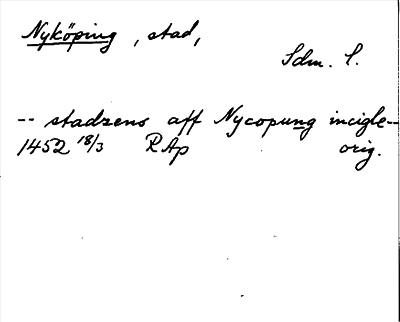 Nyköping, stad,
Sdm. S.
-- stadzens aff Nycopung incigle--
1452 18/3 RAp orig.